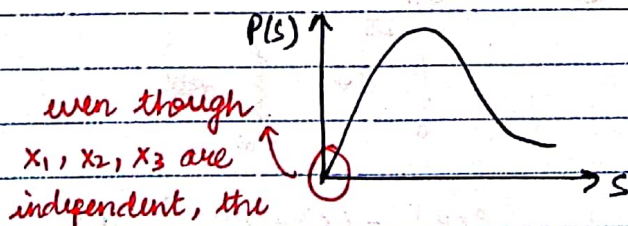 P(S)
even though
x1, x2, x3 are
independent, the
S